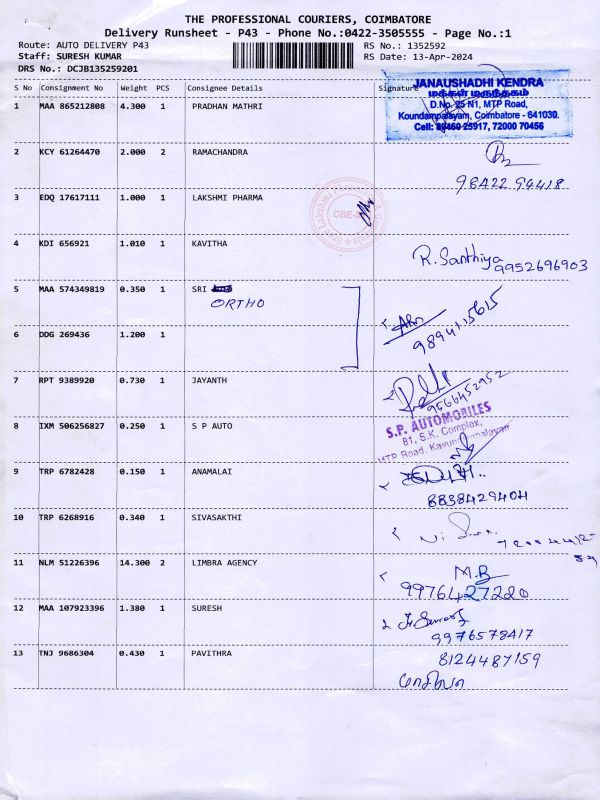 THE PROFESSIONAL COURIERS, COIMBATORE
Delivery Runsheet - P43 - Phone No.:0422-3505555 - Page No.:1
Route: AUTO DELIVERY P43
Staff: SURESH KUMAR
DRS No.: DCJB135259201
RS No.: 1352592
RS Date: 13-Apr-2024
S No Consignment No Weight PCS Consignee Details Signature
JANAUSHADHI KENDRA
மக்கள் மருந்தகம்
D.No. 25 N1, MTP Road,
Koundampalayam, Coimbatore - 641030.
Cell: 89460 25917, 72000 70456
1 MAA 865212808 4.300 1 PRADHAN MATHRI
2 KCY 61264470 2.000 2 RAMACHANDRA
96A22 94418
3 EDQ 17617111 1.000 1 LAKSHMI PHARMA
CBE-
4 KDI 656921 1.010 1 KAVITHA
R. Santhiya 9952696903
5 MAA 574349819 0.350 1 SRI
ORTHO
9894115615
6 DDG 269436 1.200 1
7 RPT 9389920 0.730 1 JAYANTH
9566452952
8 IXM 506256827 0.250 1 S P AUTO
S.P. AUTOMOBILES
81, S.K. Complex,
MTP Road, Kavundampalayam
9 TRP 6782428 0.150 1 ANAMALAI
8838429404
10 TRP 6268916 0.340 1 SIVASAKTHI
11 NLM 51226396 14.300 2 LIMBRA AGENCY
M.B
9976427220
12 MAA 107923396 1.380 1 SURESH
9976578417
13 TNJ 9686304 0.430 1 PAVITHRA
8124487159